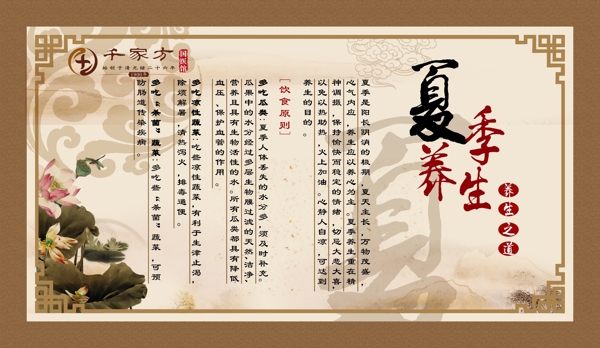 夏季养生
养生之道
夏季是阳长阴消的极期，夏天主长，万物茂盛，
心气内应，养生应以养心为主。夏季养生重在精
神调摄，保持愉快而稳定的情绪，切忌大悲大喜，
以免以热助热，火上加油。心静人自凉，可达到
养生的目的。
[饮食原则]
多吃瓜类:夏季人体丢失的水分多，须及时补充。
瓜果中的水分经过多层生物膜过滤的天然、洁净、
营养且具有生物活性的水。所有瓜类都具有降低
血压、保护血管的作用。
多吃凉性蔬菜:吃些凉性蔬菜,有利于生津止渴，
除烦解暑，清热泻火，排毒通便。
多吃“杀菌”蔬菜:多吃些“杀菌”蔬菜，可预
防肠道传染疾病。
千家方
国医馆
始创于清光绪二十六年
1900年